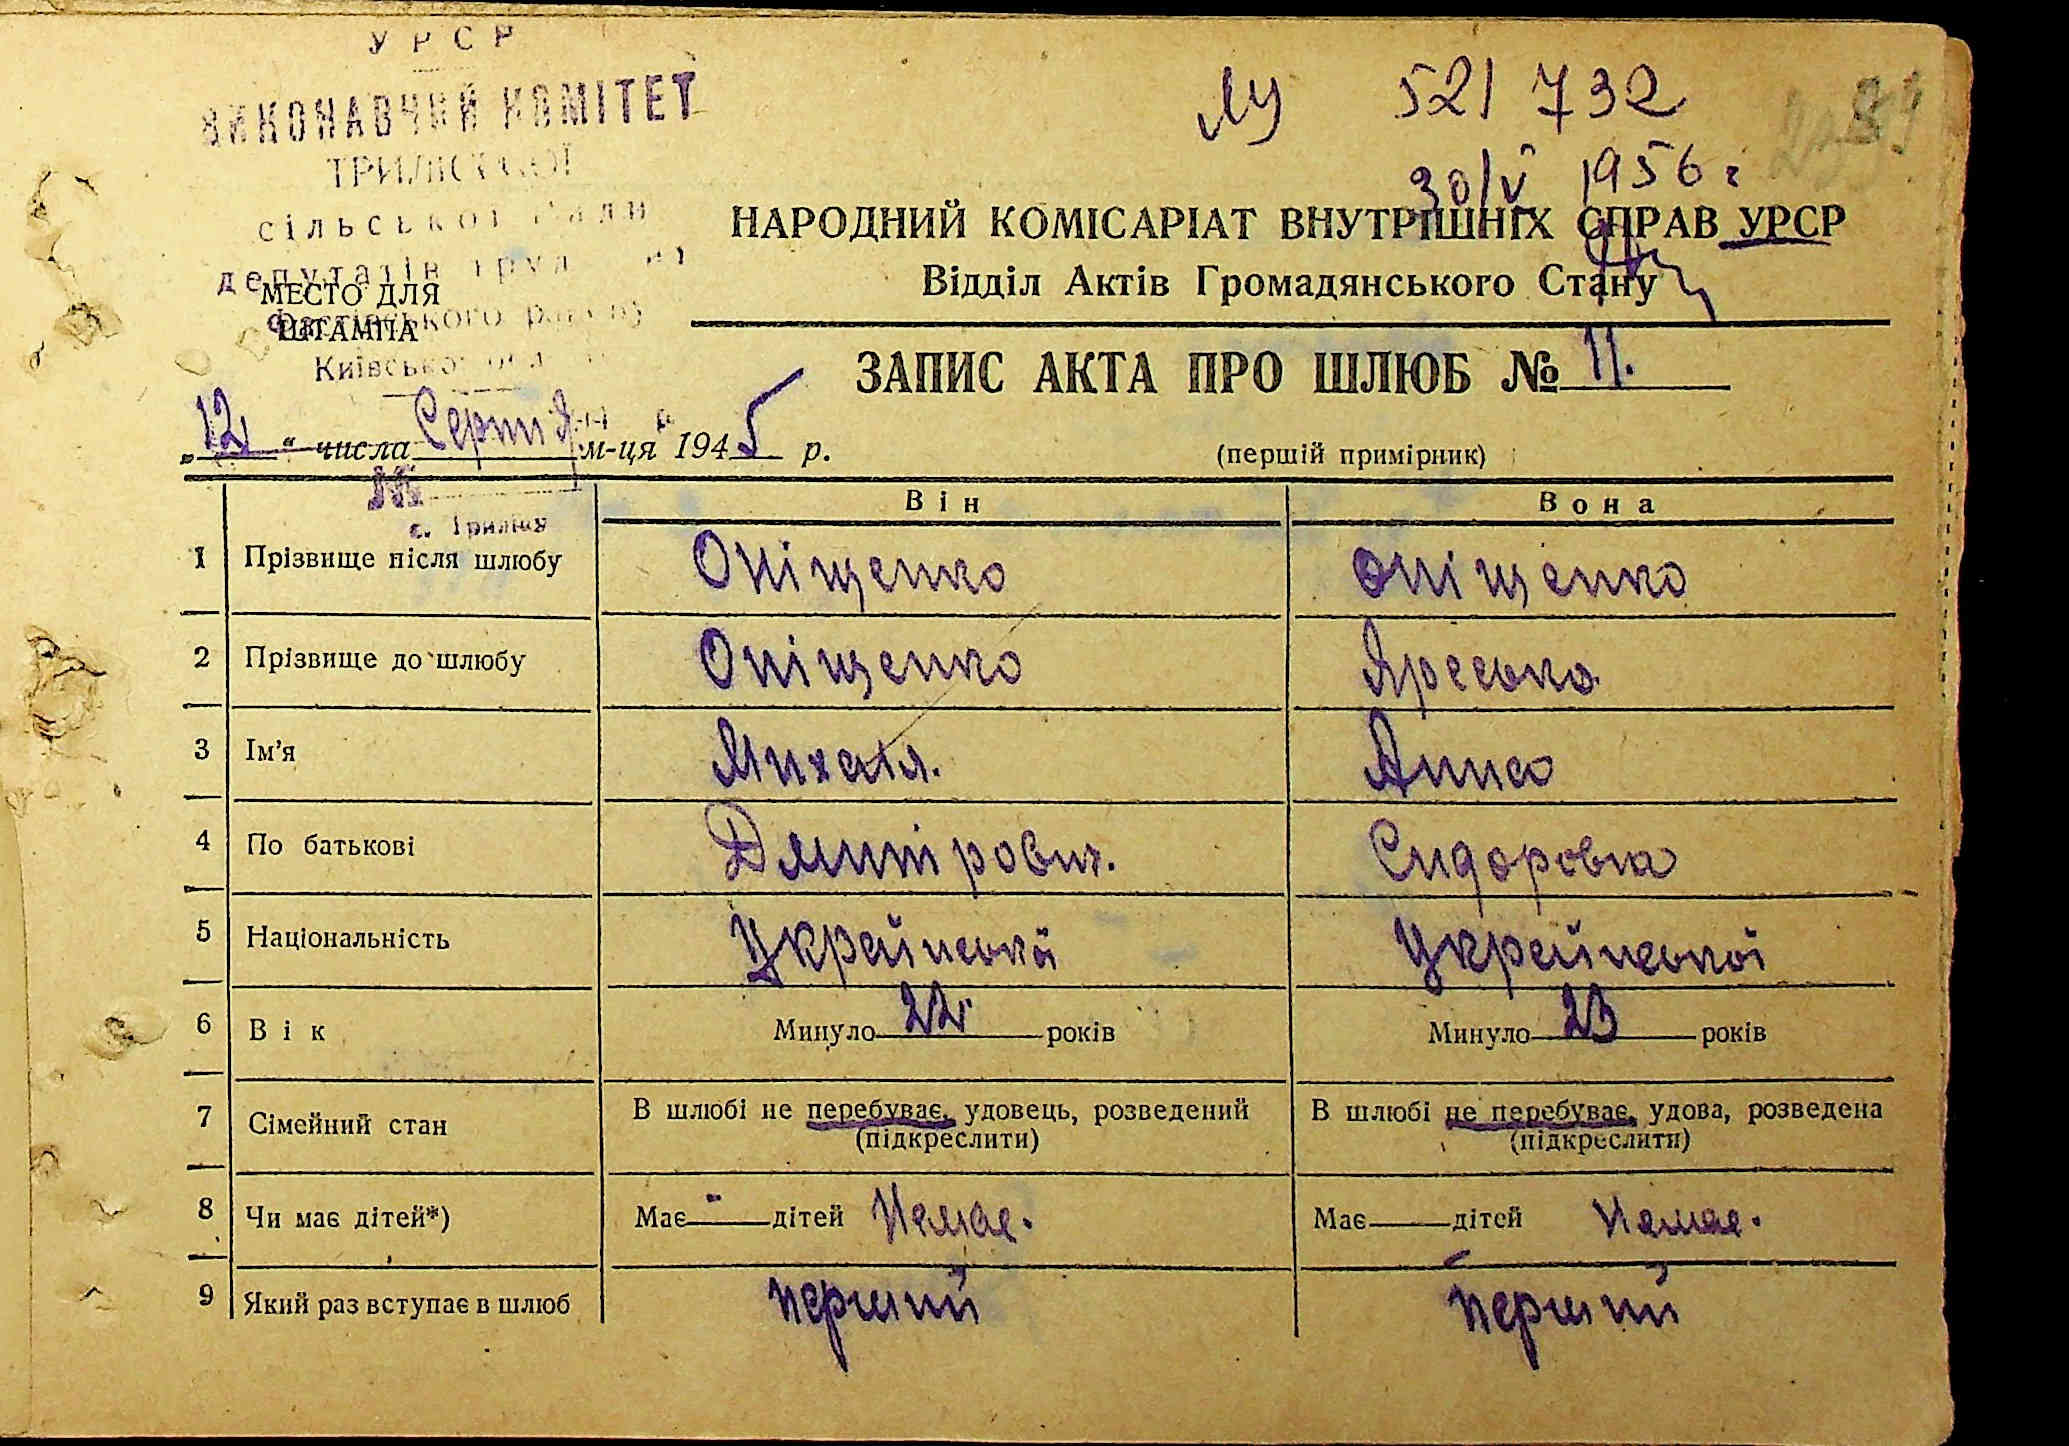 УРСР
ВИКОНАВЧИЙ КОМІТЕТ
ТРИЛІСЬКОЇ
сільської Ради
депутатів
МЕСТО ДЛЯ
ШТАМПА
Фастівського району
Київської
ЛУ 521 732
30/V 1956 г
НАРОДНИЙ КОМІСАРІАТ ВНУТРІШНІХ СПРАВ УРСР
Відділ Актів Громадянського Стану
ЗАПИС АКТА ПРО ШЛЮБ № 11.
„12“ числа Серпня м-ця 1945 р.
(перший примірник)
с. Триліси
Він Вона
1 Прізвище після шлюбу Оніщенко Оніщенко
2 Прізвище до шлюбу Оніщенко Яресько
3 Ім'я Михайл. Анна
4 По батькові Дмитрович. Сидоровна
5 Національність Української Української
6 Вік Минуло 22 років Минуло 23 років
7 Сімейний стан В шлюбі не перебуває, удовець, розведений В шлюбі не перебуває, удова, розведена
(підкреслити) (підкреслити)
8 Чи має дітей*) Має - дітей Немає. Має дітей Немає.
9 Який раз вступає в шлюб перший перший